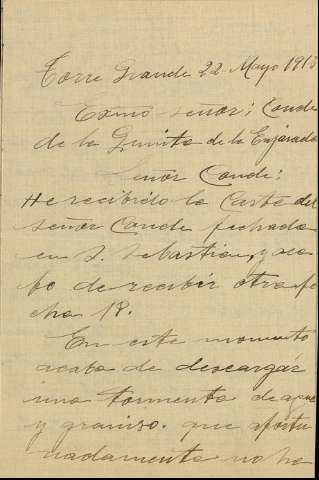 Torre Grande 22 Mayo 191
Exmo Señor; Conde
de la Quinta de la Enjarada
Señor Conde:
He recibido la Carta del
señor Conde fechada
en S. Sebastian, y aca-
bo de recibir otra fe
cha 18.
En este momento
acaba de descargar
una tormenta de agua
y granizo. que afortu
nadamente no ha